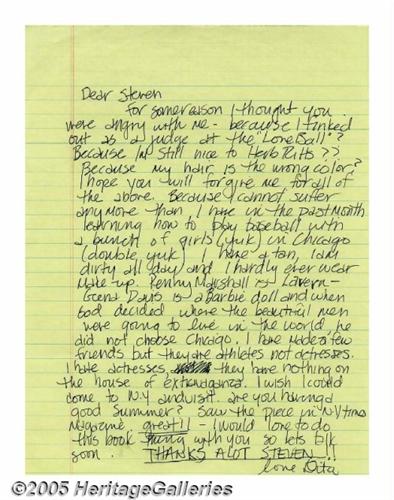 Dear Steven
For some reason I thought you
were angry with me - because I finked
out as a judge at the "Love Ball"?
Because I'm still nice to Herb Ritts??
Because my hair is the wrong color?
I hope you will forgive me for all of
the above. Because I cannot suffer
anymore than I have in the past month
learning how to play baseball with
a bunch of girls (yuk) in Chicago
(double yuk) I have a tan, I am
dirty all day and I hardly ever wear
make-up. Penny Marshall is Lavern-
Geena Davis is a Barbie doll and when
God decided where the beautiful men
were going to live in the world, he
did not choose Chicago. I have made a few
friends but they are athletes not actresses.
I hate actresses, they have nothing on
the house of extravaganza. I wish I could
come to N.Y. and visit. Are you having a
good Summer? Saw the piece in NY times
Magazine great!! - I would love to do
this book with you so lets talk
soon. THANKS ALOT STEVEN!!
Love Dita
©2005 HeritageGalleries